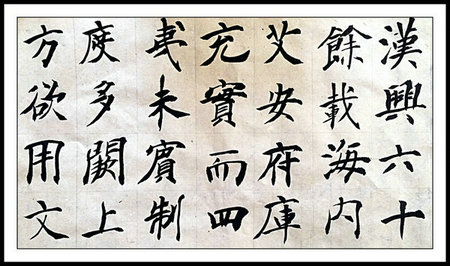 漢興六十
餘載海内
艾安府庫
充實而四
夷未賓制
度多闕上
方欲用文